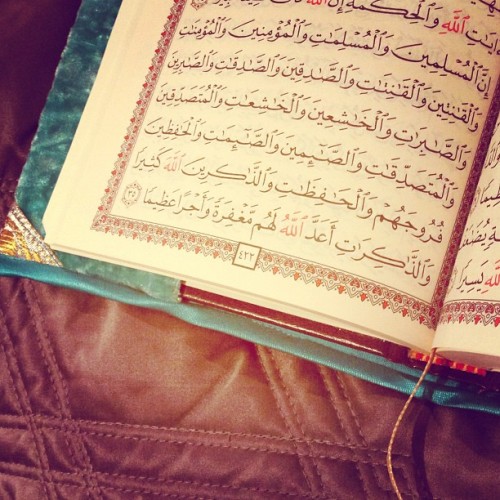 ءَايَٰتِ ٱللَّهِ وَٱلْحِكْمَةِ إِنَّ ٱللَّهَ كَانَ
إِنَّ ٱلْمُسْلِمِينَ وَٱلْمُسْلِمَٰتِ وَٱلْمُؤْمِنِينَ وَٱلْمُؤْمِنَٰتِ
وَٱلْقَٰنِتِينَ وَٱلْقَٰنِتَٰتِ وَٱلصَّٰدِقِينَ وَٱلصَّٰدِقَٰتِ وَٱلصَّٰبِرِينَ
وَٱلصَّٰبِرَٰتِ وَٱلْخَٰشِعِينَ وَٱلْخَٰشِعَٰتِ وَٱلْمُتَصَدِّقِينَ
وَٱلْمُتَصَدِّقَٰتِ وَٱلصَّٰٓئِمِينَ وَٱلصَّٰٓئِمَٰتِ وَٱلْحَٰفِظِينَ
فُرُوجَهُمْ وَٱلْحَٰفِظَٰتِ وَٱلذَّٰكِرِينَ ٱللَّهَ كَثِيرًا
وَٱلذَّٰكِرَٰتِ أَعَدَّ ٱللَّهُ لَهُم مَّغْفِرَةً وَأَجْرًا عَظِيمًا ٣٥
٤٢٢
ٱللَّهِ يَسِيرًا